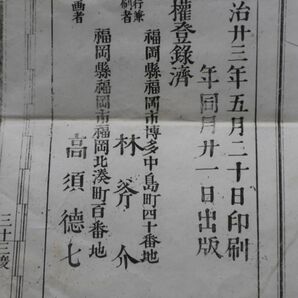 治廿三年五月二十日印刷
年同月廿一日出版
權登録濟
行兼
刷者
福岡縣福岡市博多中島町四十番地
林斧介
画者
福岡縣福岡市福岡北湊町百番地
高須德七
三十三度